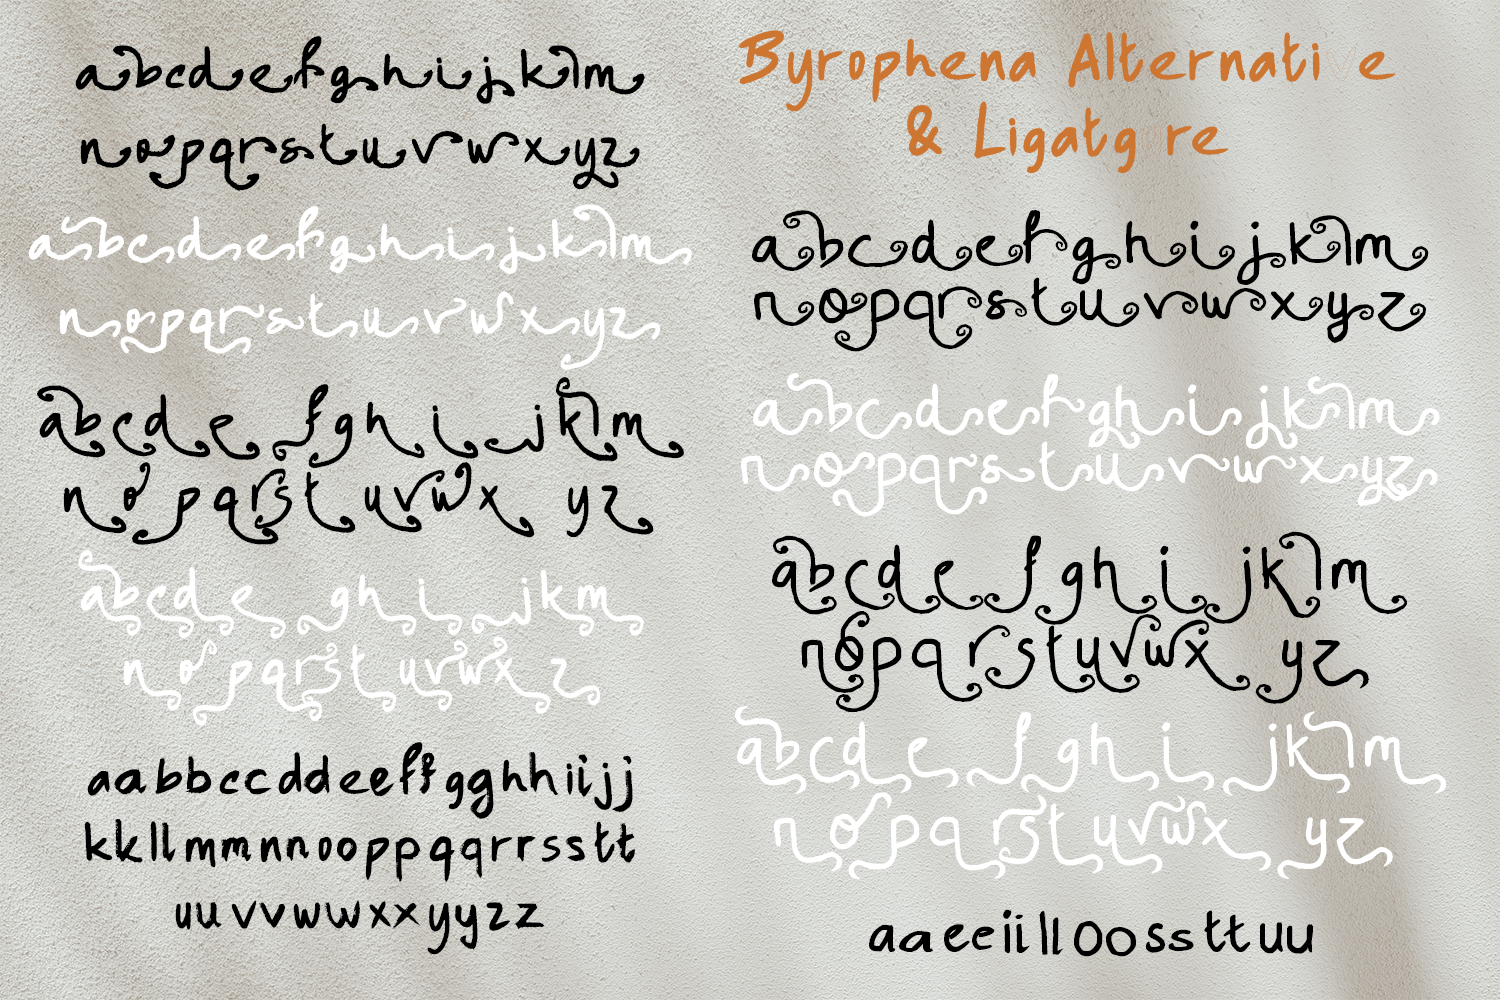 Byrophena Alternati e
& Ligatg re
abcdefghijklm
nopqrstuvwxyz
abcdefghijklm
nopqrstuvwxyz
abcdefghijklm
nopqrstuvwxyz
abcde ghijkm
nopqrstuvwxz
aabbccddeeffgghhiijj
kkllmmnnooppqqrrsstt
uuvvwwxxyyzz
abcdefghijklm
nopqrstuvwxyz
abcdefghijklm
nopqrstuvwxyz
abcdefghijklm
nopqrstuvwxyz
abcdefghijklm
nopqrstuvwxyz
aaeeiilloossttuu